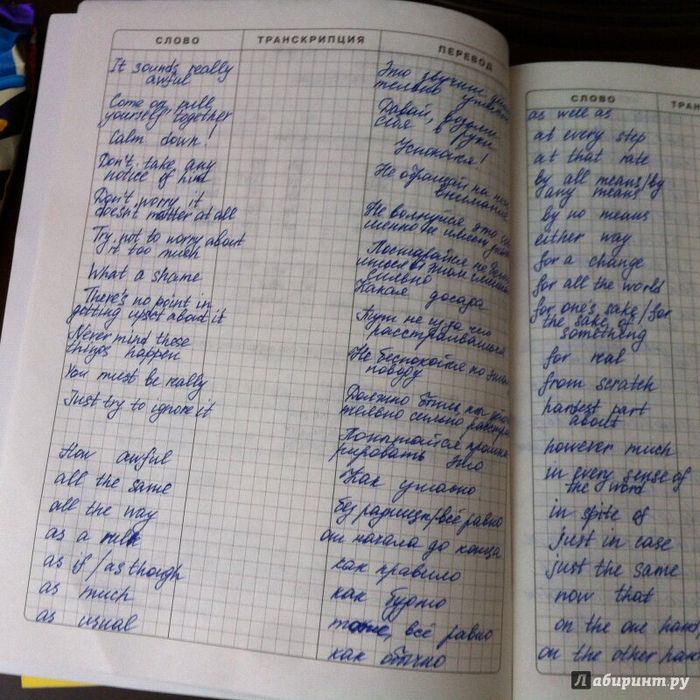 СЛОВО ТРАНСКРИПЦИЯ ПЕРЕВОД
It sounds really
awful
Come on, pull
yourself together
Calm down!
Don't take any
notice of him
Don't worry it
doesn't matter at all
Try not to worry about
it too much
What a shame
There's no point in
getting upset about it
Never mind these
things happen
You must be really
Just try to ignore it
How awful
all the same
all the way
as a rule
as if / as though
as much
as usual
Это звучит
ужасно
Давай, возьми
себя в руки
Успокойся!
Не обращай на него
внимания
Не волнуйся это
не имеет
Постарайся не
об этом слишком
сильно
Какая досада
Тут не из-за чего
расстраиваться
Не беспокойся по этому
поводу
Должно быть, ты
сильно
Попытайся проигно-
рировать это
Как ужасно
без разницы/всё равно
от начала до конца
как правило
как будто
тоже, всё равно
как обычно
СЛОВО ТРАН
as well as
at every step
at that rate
by all means/by
any means
by no means
either way
for a change
for all the world
for one's sake / for
the sake of
something
for real
from scratch
hardest part
about
however much
in every sense of
the word
in spite of
just in case
just the same
now that
on the one hand
on the other hand
Лабиринт.ру